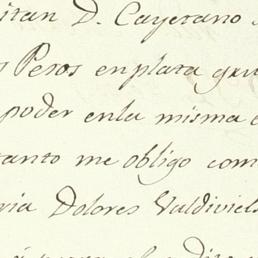 itan D. Cayetano
s Pesos enplata
poder enla misma
tanto me obligo com
ria Dolores Valdiviels